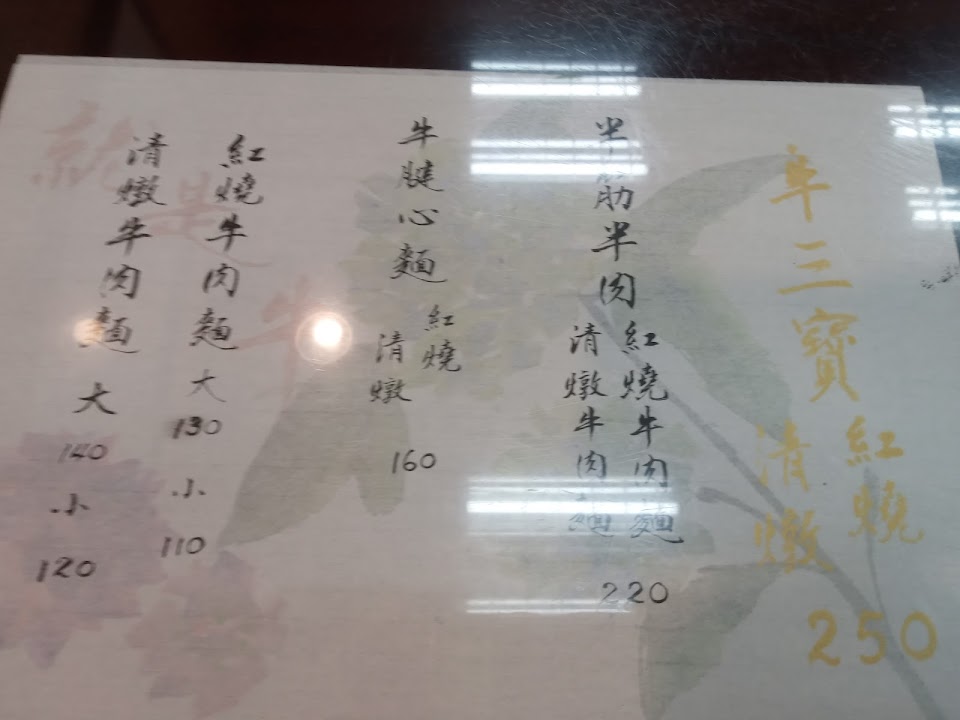 牛三寶
紅燒
清燉
250
半筋半肉
紅燒牛肉麵
清燉牛肉麵
220
牛腱心麵
紅燒
清燉
160
紅燒牛肉麵 大 130 小 110
清燉牛肉麵 大 140 小 120
就是牛